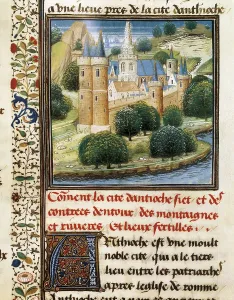 a une lieue pres de la cite danthioche
Coment la cite dantioche siet et des
contrees dentour des montaignes
et riuieres et lieux fertilles
Antioche est une moult
noble cite qui a le tiers
lieu entre les patriarche
apres leglise de romme